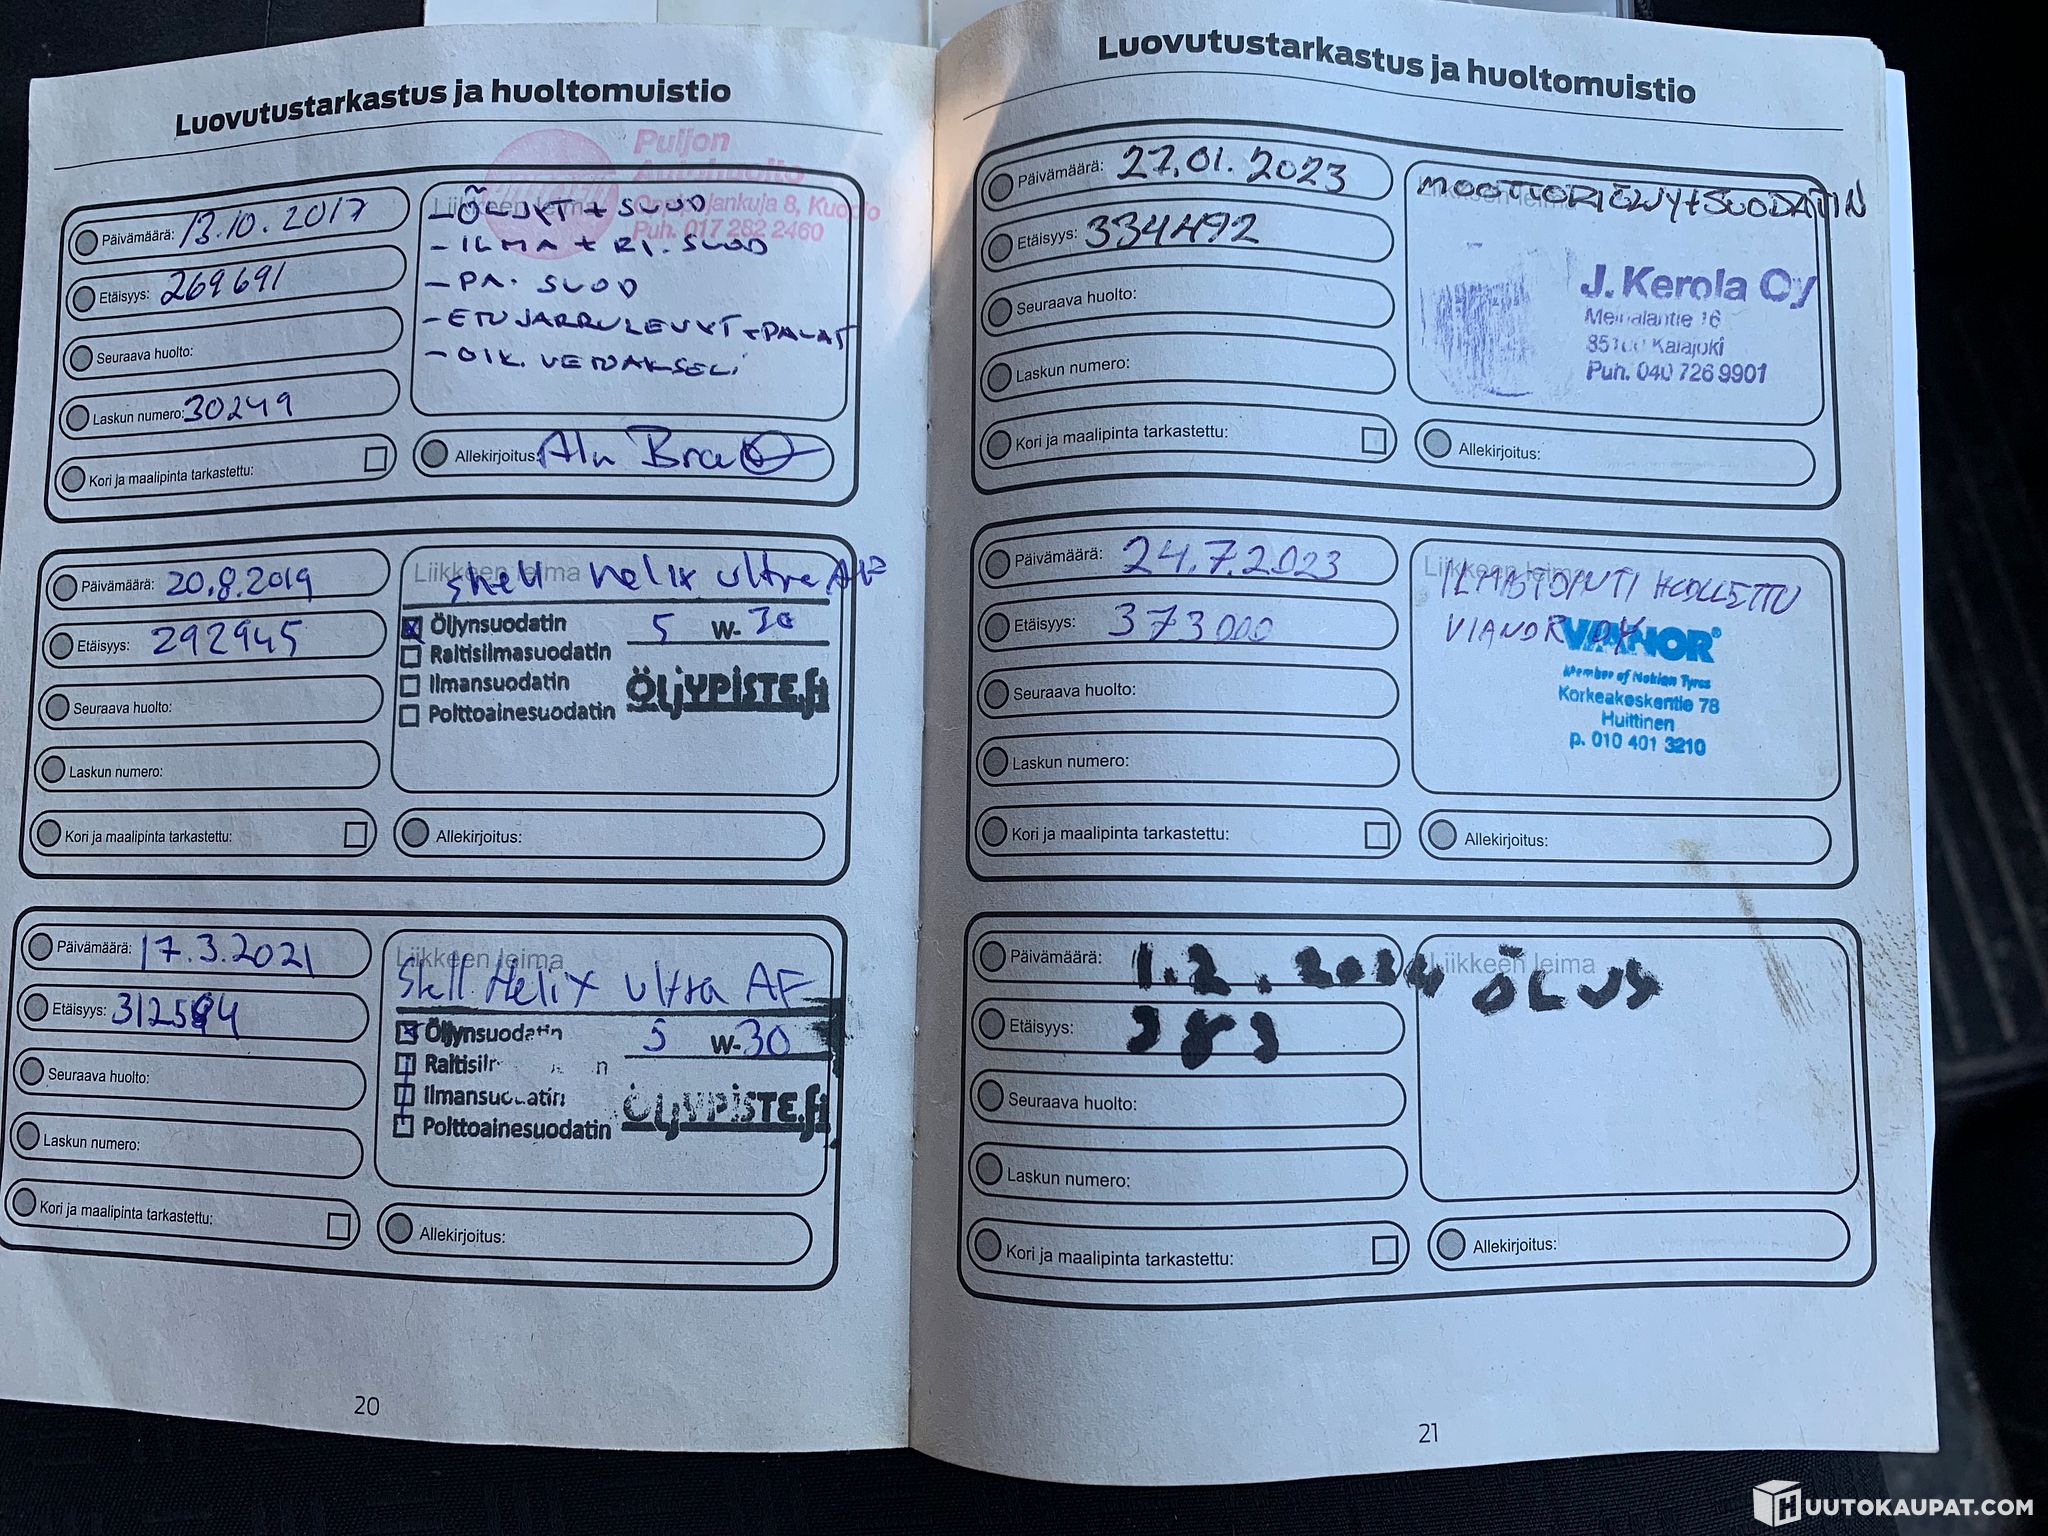 Luovutustarkastus ja huoltomuistio
Puijon
Autohuolto
Oppipojankuja 8, Kuopio
Puh. 017 282 2460
Päivämäärä: 13.10.2017
Etäisyys: 269691
Seuraava huolto:
Laskun numero: 30249
Kori ja maalipinta tarkastettu:
Liikkeen leima
- ÖLJYT + SUOD
- ILMA + RI. SUOD
- PA. SUOD
- ETUJARRULEVYT + PALAT
- OIK. VETOAKSELI
Allekirjoitus:
Päivämäärä: 20.8.2019
Etäisyys: 292945
Seuraava huolto:
Laskun numero:
Kori ja maalipinta tarkastettu:
Liikkeen leima
Shell helix ultra AF
Öljynsuodatin 5 W-30
Raitisilmasuodatin
Ilmansuodatin
Polttoainesuodatin
ÖLJYPISTE.fi
Allekirjoitus:
Päivämäärä: 17.3.2021
Etäisyys:
Seuraava huolto:
Laskun numero:
Kori ja maalipinta tarkastettu:
Liikkeen leima
Shell Helix ultra AF
Öljynsuodatin 5 W-30
Ilmansuodatin
Polttoainesuodatin
ÖLJYPISTE.fi
Allekirjoitus:
20
Luovutustarkastus ja huoltomuistio
Päivämäärä: 27.01.2023
Etäisyys: 334492
Seuraava huolto:
Laskun numero:
Kori ja maalipinta tarkastettu:
Liikkeen leima
MOOTTORIÖLJY+SUODATIN
J. Kerola Oy
85100 Kalajoki
Puh. 040 726 9901
Allekirjoitus:
Päivämäärä: 24.7.2023
Etäisyys: 373000
Seuraava huolto:
Laskun numero:
Kori ja maalipinta tarkastettu:
Liikkeen leima
ILMASTOINTI HUOLLETTU
VIANOR OY
VIANOR®
Member of Nokian Tyres
Korkeakoskentie 78
Huittinen
p. 010 401 3210
Allekirjoitus:
Päivämäärä: 1.2.2024
Etäisyys: 383
Seuraava huolto:
Laskun numero:
Kori ja maalipinta tarkastettu:
Liikkeen leima
ÖLJY
Allekirjoitus:
21
HUUTOKAUPAT.COM